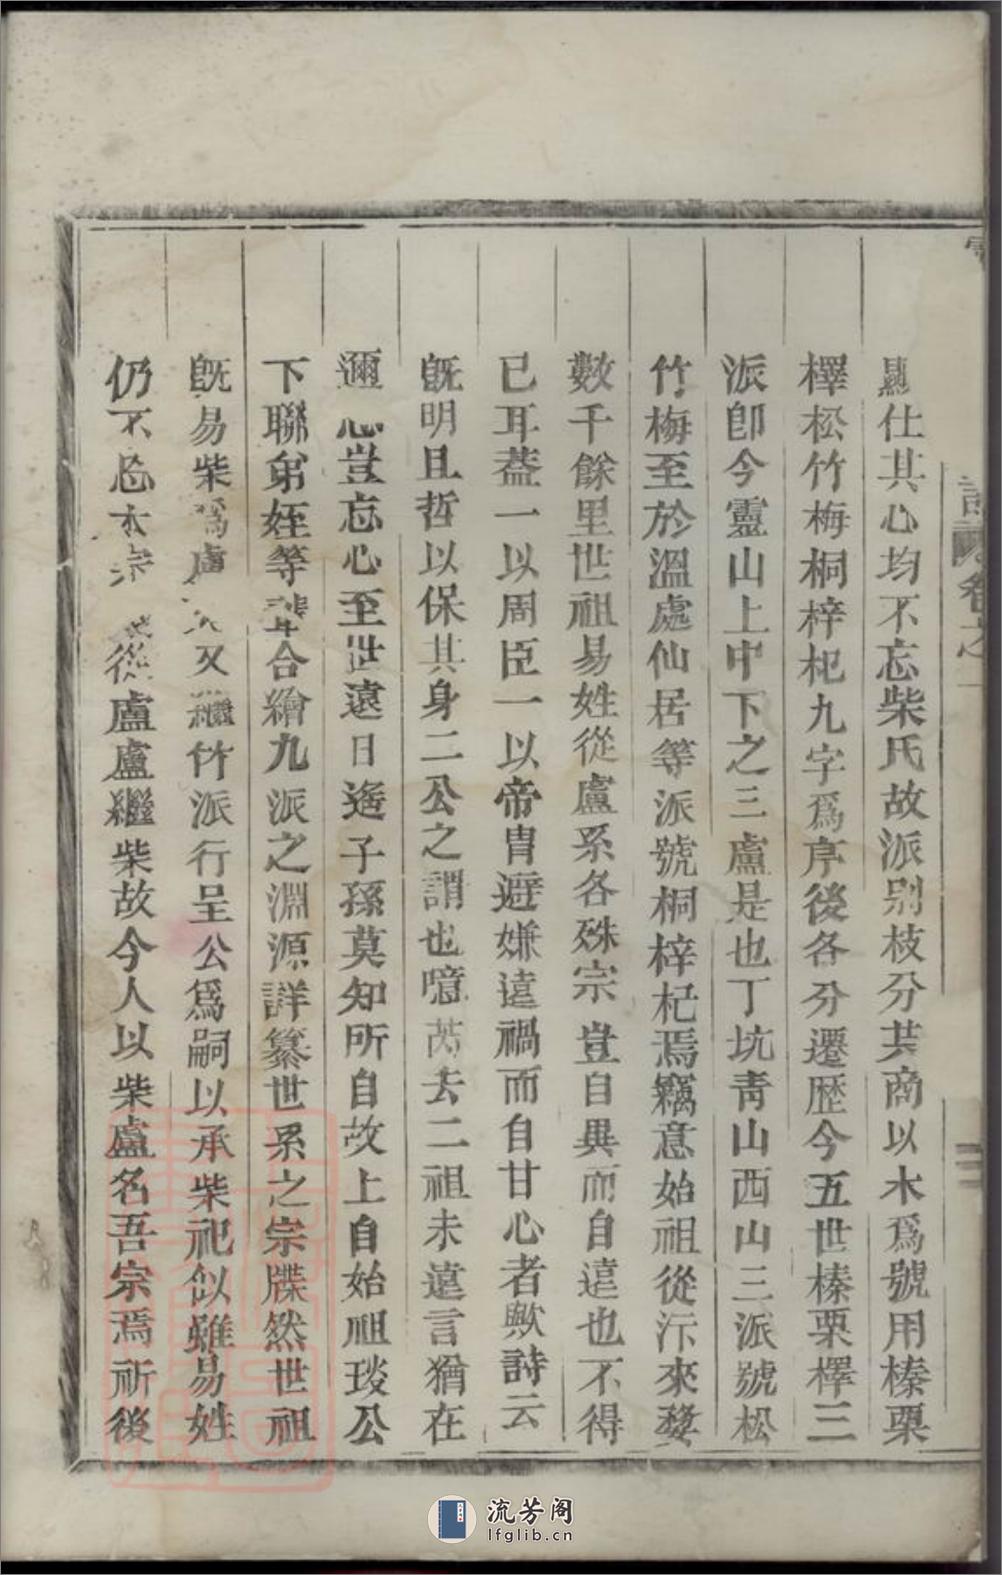 顯仕其心均不忘柴氏故派别枝分共商以木爲號用榛栗
檡松竹梅桐梓杞九字爲序後各分遷歴今五世榛栗檡三
派卽今靈山上中下之三盧是也丁坑靑山西山三派號松
竹梅至於溫處仙居等派號桐梓杞焉竊意始祖從汴來婺
數千餘里世祖易姓從盧系各殊宗豈自異而自遠也不得
已耳葢一以周臣一以帝胄避嫌遠禍而自甘心者歟詩云
旣明且哲以保其身二公之謂也噫芮去二祖未遠言猶在
邇豈忘心至世遠日遙子孫莫知所自故上自始祖琰公
下聯弟姪等輩合繪九派之淵源詳纂世系之宗牒然世祖
旣易柴爲盧又繼竹派行呈公爲嗣以承柴祀似雖易姓
仍不忘本宗從盧盧繼柴故今人以柴盧名吾宗焉祈後
卷之一
流芳阁
lfglib.cn